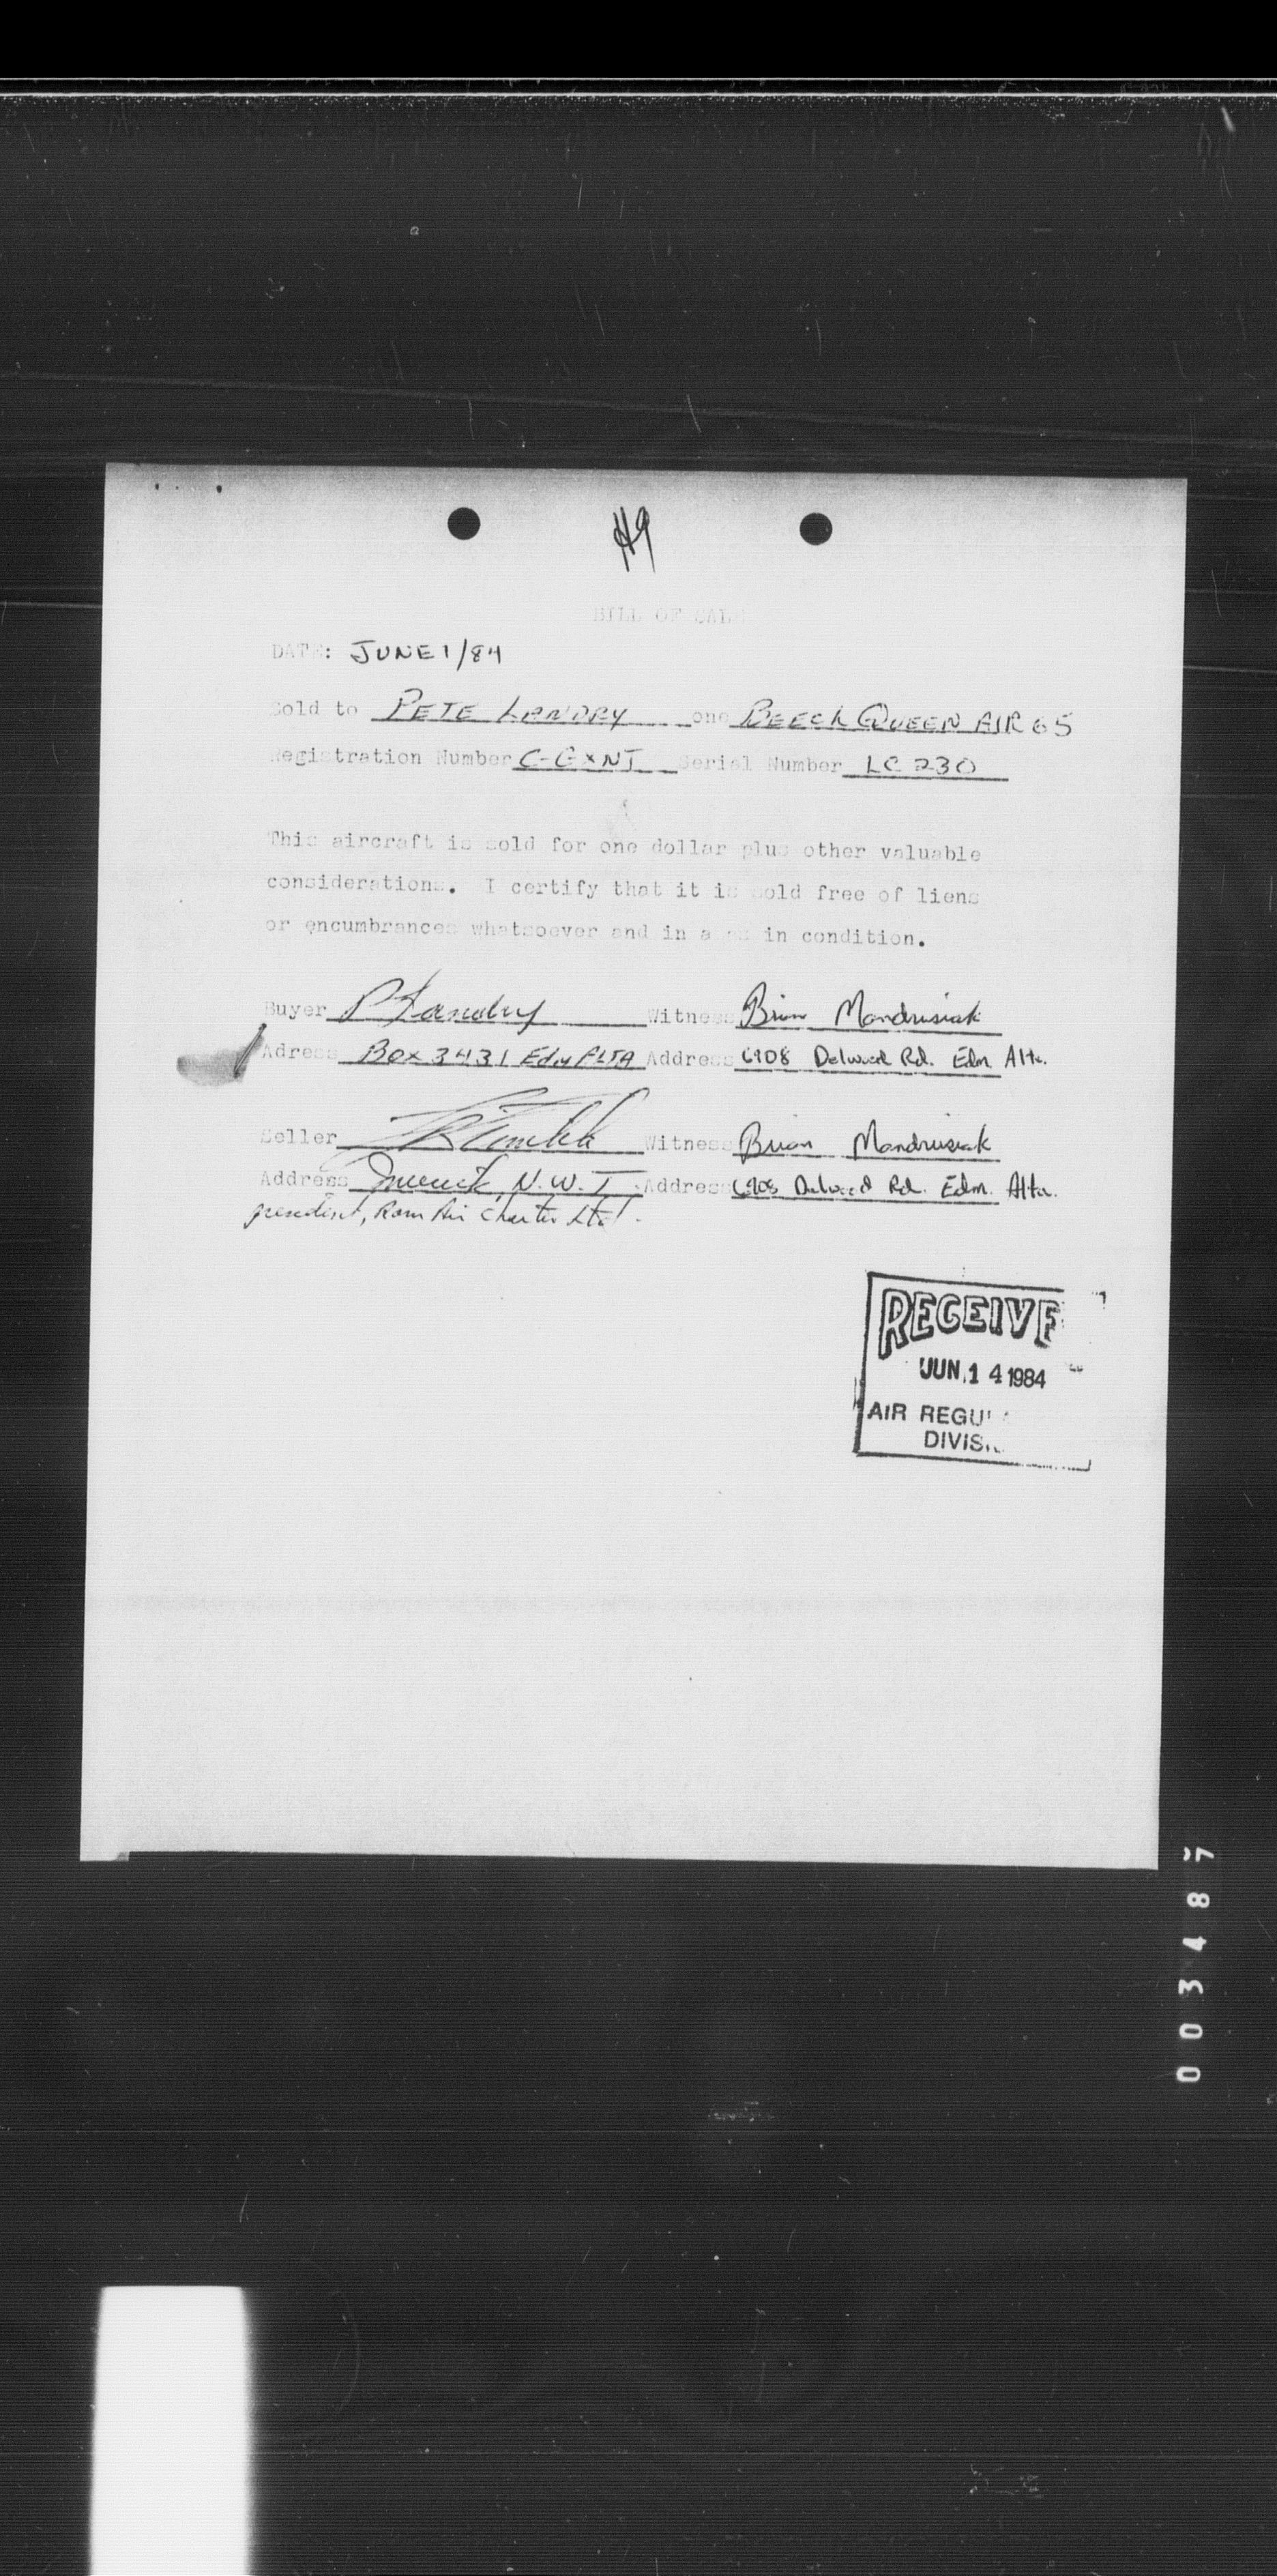 49
BILL OF SALE
DATE: JUNE 1/84
Sold to PETE LANDRY one BEECH QUEEN AIR 65
Registration Number C-GXNJ Serial Number LC 230
This aircraft is sold for one dollar plus other valuable
considerations. I certify that it is sold free of liens
or encumbrances whatsoever and in a as in condition.
Buyer P Landry Witness Brian Mandrusiak
Adress Box 3431 Edm ALTA Address 6908 Delwood Rd. Edm Alta.
Seller Witness Brian Mandrusiak
Address Inuvik, N.W.T. Address 6908 Delwood Rd. Edm. Alta.
president, Ram Air Charter Ltd.
RECEIVE
JUN. 14 1984
AIR REGU
DIVIS
003487